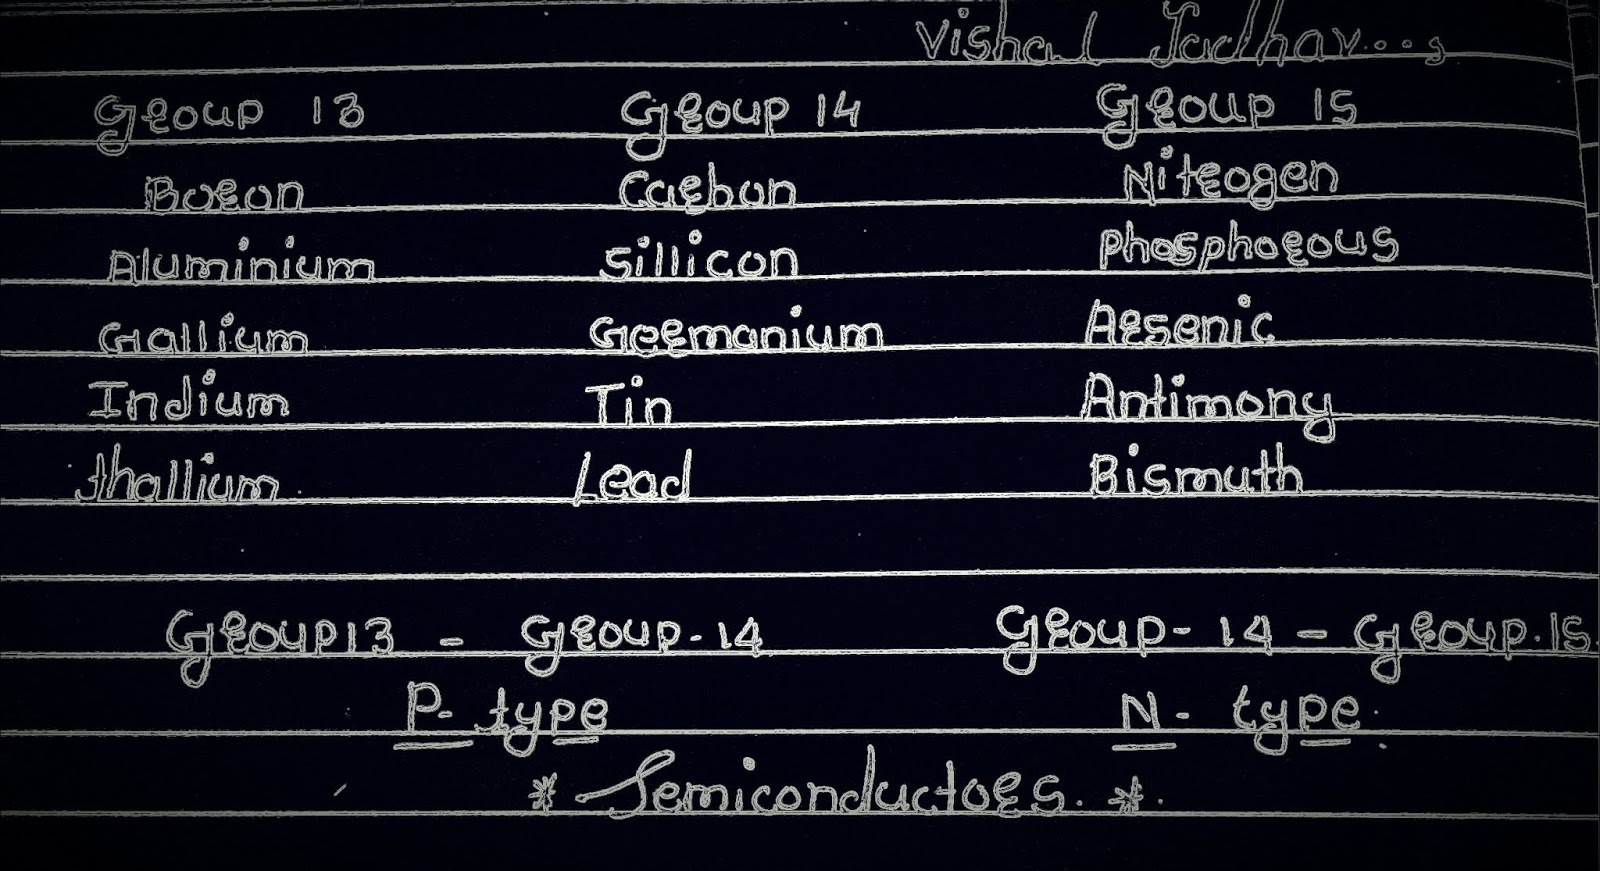 Vishal Jadhav...,
Group 13 Group 14 Group 15
Boron Carbon Nitrogen
Aluminium Sillicon Phosphorous
Gallium Germanium Arsenic
Indium Tin Antimony
thallium Lead Bismuth
Group13 - Group-14 Group-14 - Group.15
P- type N- type.
* Semiconductors. *.